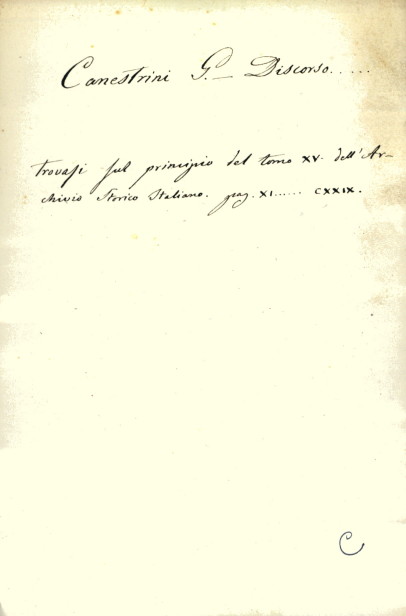 Canestrini G.— Discorso.....
trovasi sul principio del tomo XV. dell'Ar-
chivio Storico Italiano. pag. XI...... CXXIX.
C